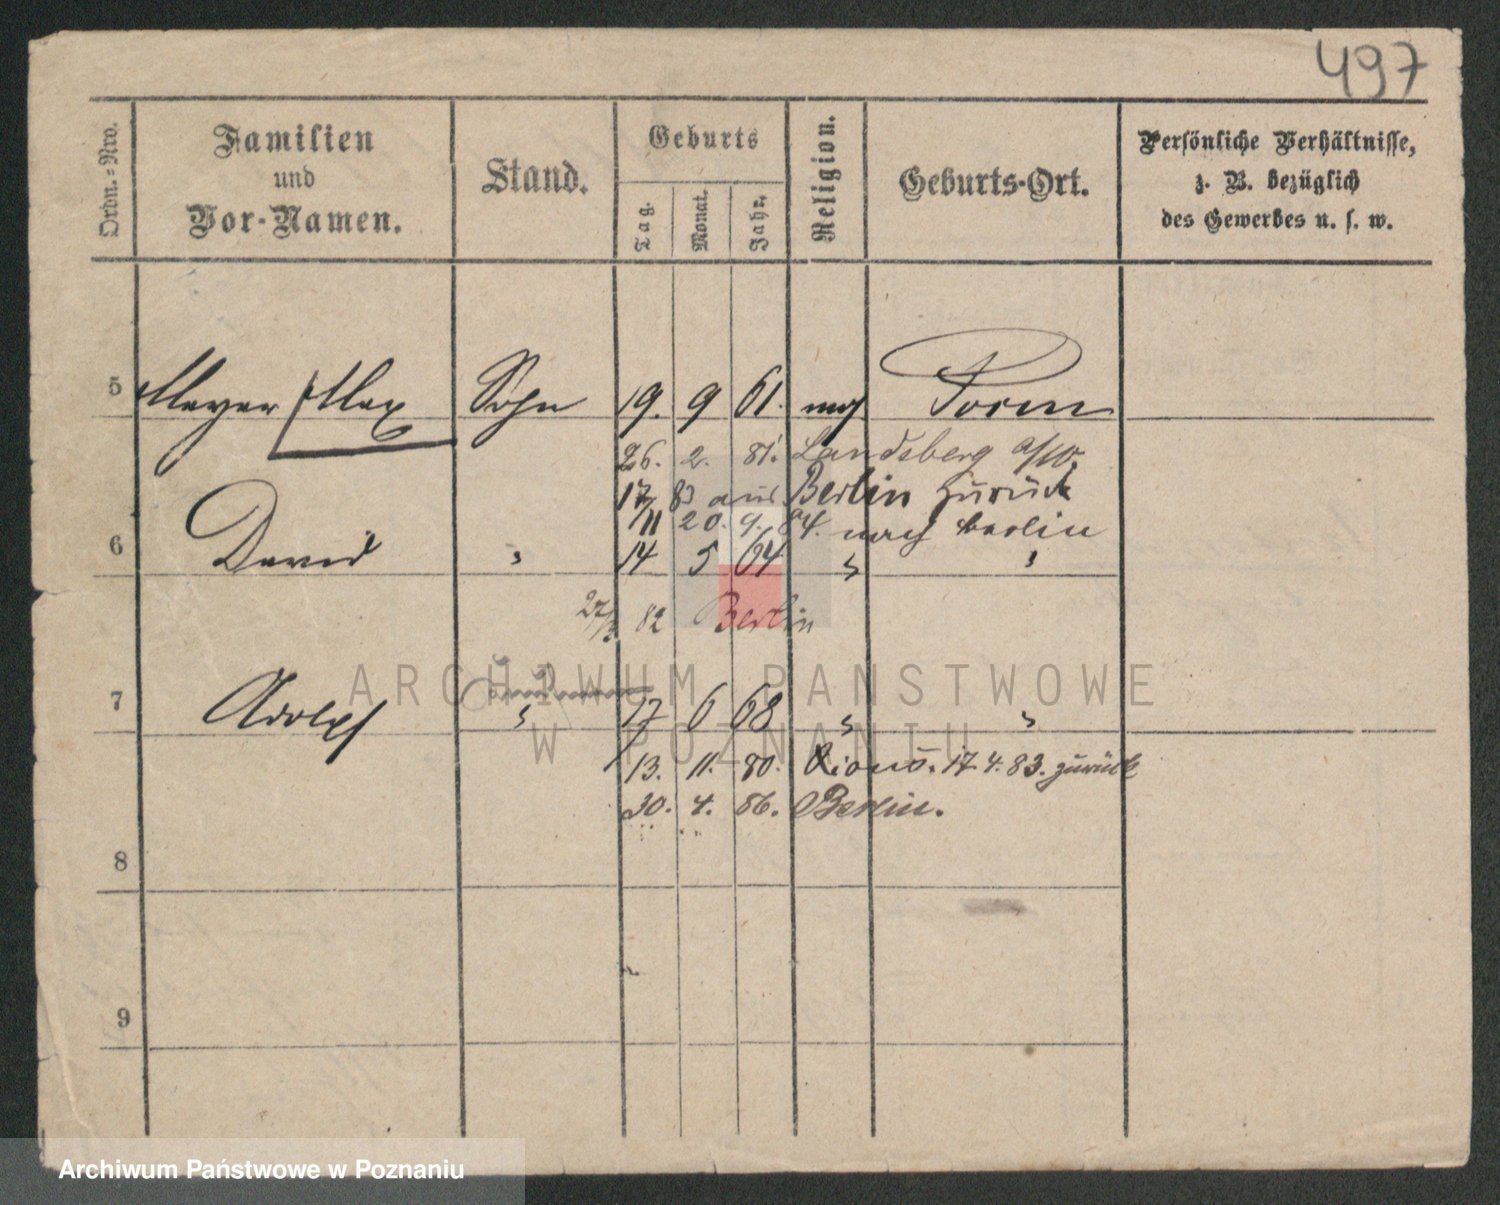 497
Ordn.=Nro.
Familien
und
Vor-Namen.
Stand.
Geburts
Tag.
Monat.
Jahr.
Religion.
Geburts-Ort.
Persönliche Verhältnisse,
z. B. bezüglich
des Gewerbes u. s. w.
5 Meyer Max Sohn 19. 9 61.
26. 2. 81. Landsberg a/W.
17/11 83 aus Berlin zurück
20. 9. 84. nach Berlin
6 David " 14 5 64 " "
82 Berlin
7 Adolph " 17 6 68 " "
13. 11. 80. 17. 4. 83. zurück
30. 4. 86. Berlin.
8
9
ARCHIWUM PAŃSTWOWE
W POZNANIU
Archiwum Państwowe w Poznaniu